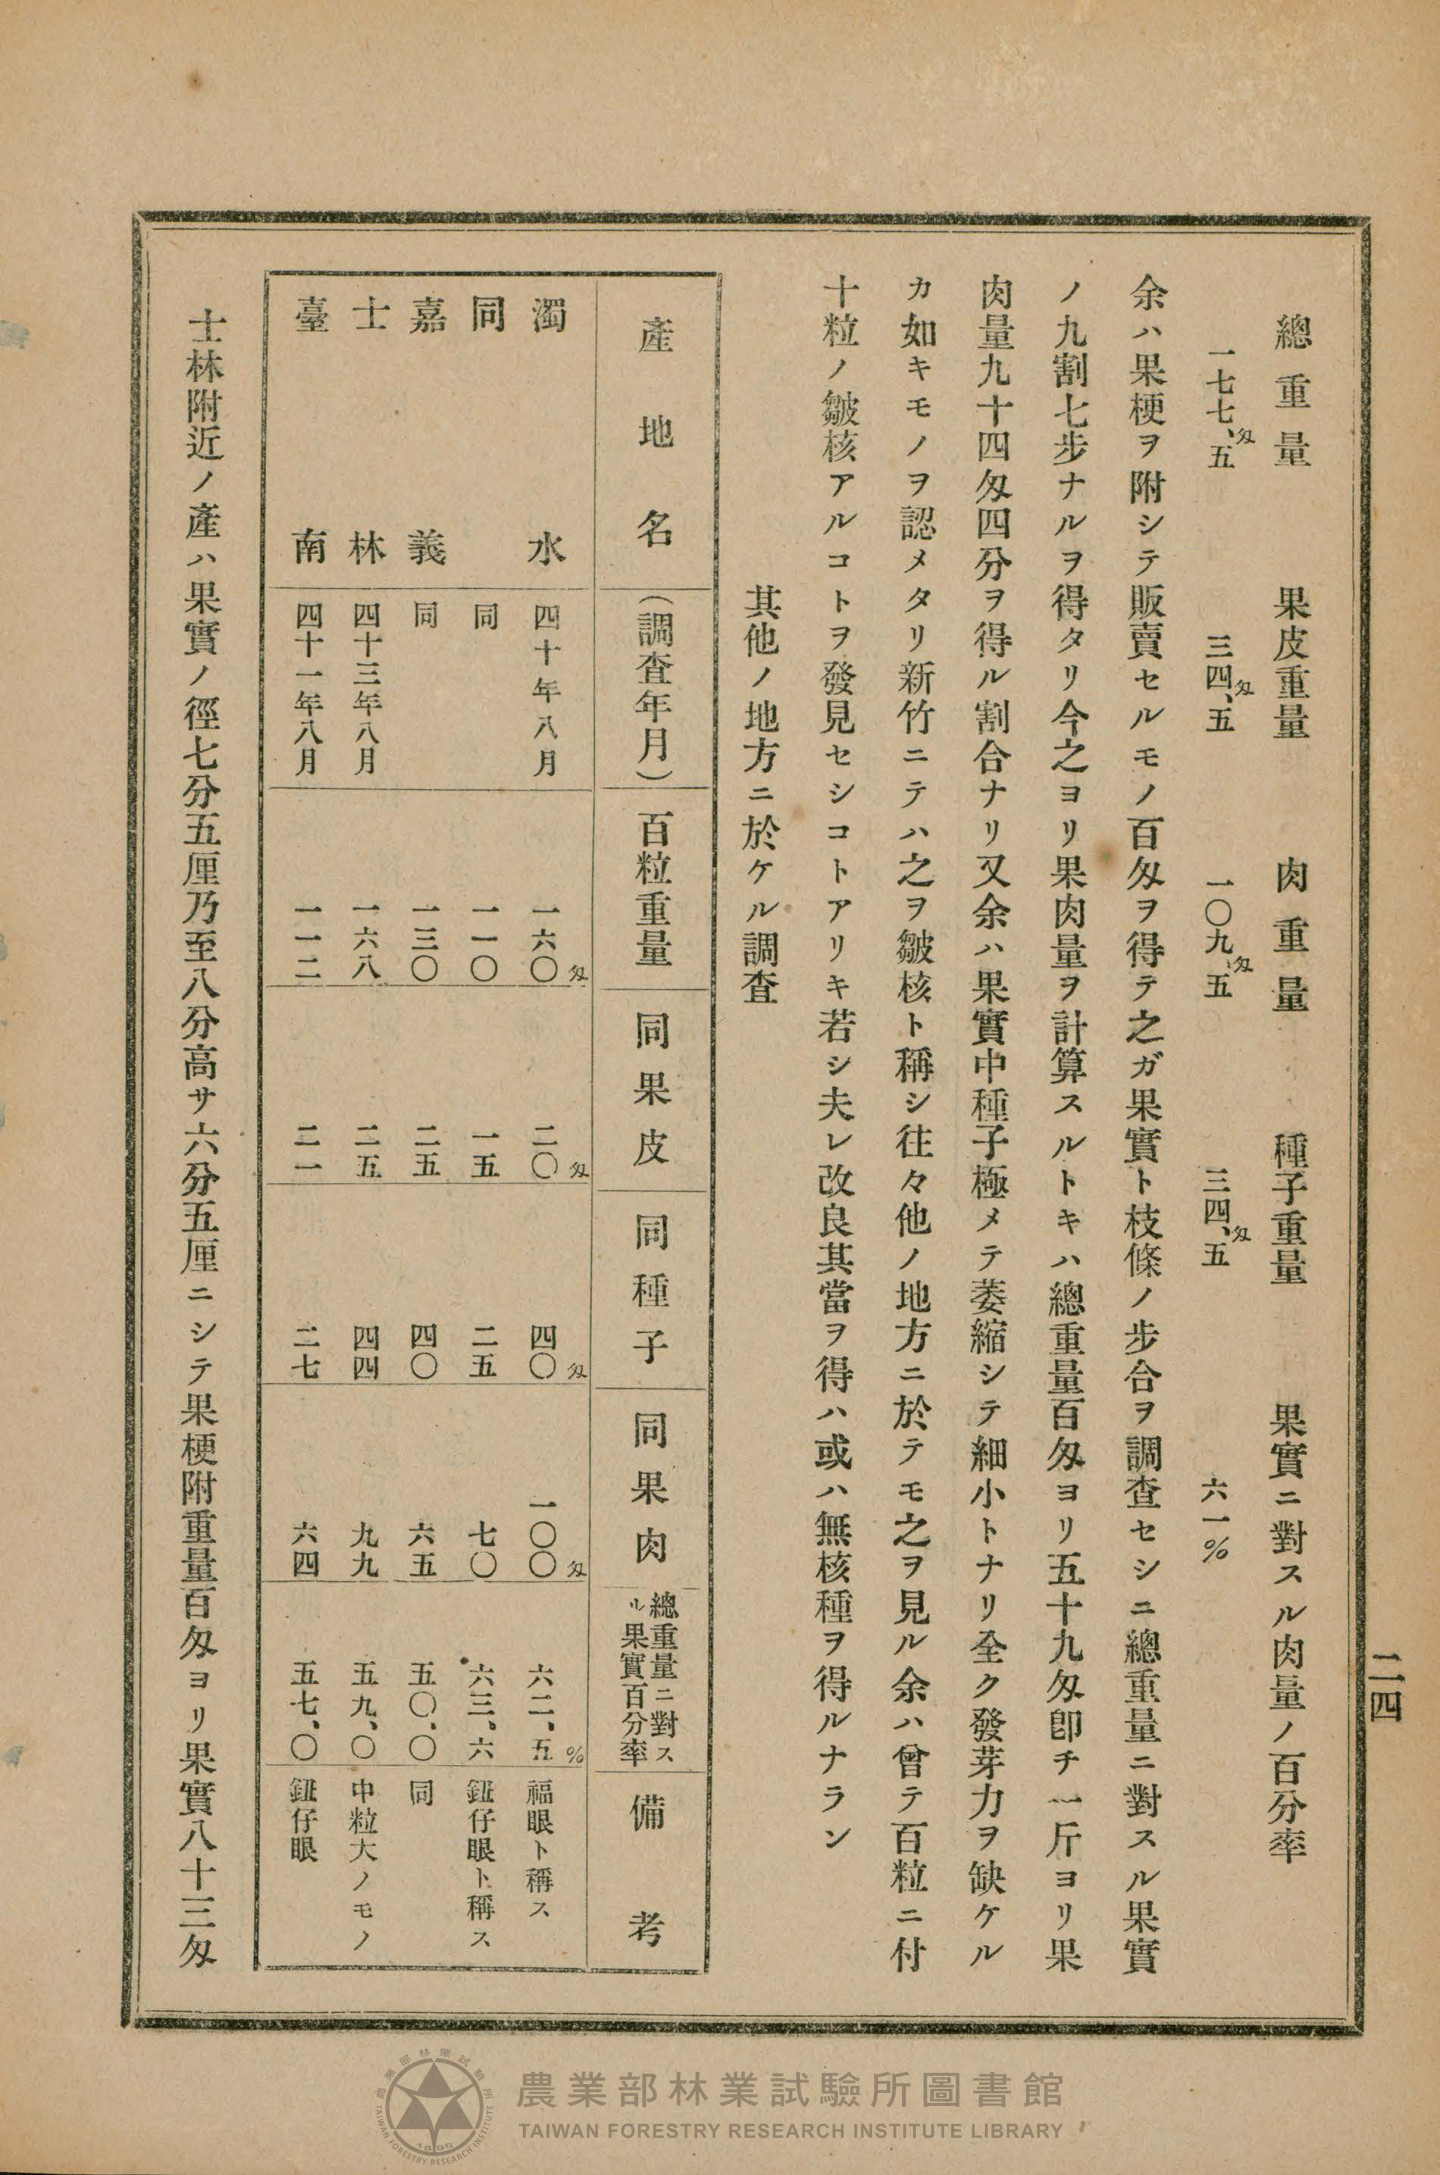 二四
總重量　果皮重量　肉重量　種子重量　果實ニ對スル肉量ノ百分率
一七七、五匁　三四、五匁　一〇九、五匁　三四、五匁　六一%
余ハ果梗ヲ附シテ販賣セルモノ百匁ヲ得テ之ガ果實ト枝條ノ步合ヲ調査セシニ總重量ニ對スル果實
ノ九割七步ナルヲ得タリ今之ヨリ果肉量ヲ計算スルトキハ總重量百匁ヨリ五十九匁卽チ一斤ヨリ果
肉量九十四匁四分ヲ得ル割合ナリ又余ハ果實中種子極メテ萎縮シテ細小トナリ全ク發芽力ヲ缺ケル
カ如キモノヲ認メタリ新竹ニテハ之ヲ皺核ト稱シ往々他ノ地方ニ於テモ之ヲ見ル余ハ曾テ百粒ニ付
十粒ノ皺核アルコトヲ發見セシコトアリキ若シ夫レ改良其當ヲ得ハ或ハ無核種ヲ得ルナラン
其他ノ地方ニ於ケル調査
產地名　（調査年月）　百粒重量　同果皮　同種子　同果肉　總重量ニ對スル果實百分率　備考
濁水　四十年八月　一六〇匁　二〇匁　四〇匁　一〇〇匁　六二、五%　福眼ト稱ス
同　同　一一〇　一五　二五　七〇　六三、六　鈕仔眼ト稱ス
嘉義　同　一三〇　二五　四〇　六五　五〇、〇　同
士林　四十三年八月　一六八　二五　四四　九九　五九、〇　中粒大ノモノ
臺南　四十一年八月　一一二　二一　二七　六四　五七、〇　鈕仔眼
士林附近ノ產ハ果實ノ徑七分五厘乃至八分高サ六分五厘ニシテ果梗附重量百匁ヨリ果實八十三匁
農業部林業試驗所圖書館
TAIWAN FORESTRY RESEARCH INSTITUTE LIBRARY
農業部林業試驗所
TAIWAN FORESTRY RESEARCH INSTITUTE
1896